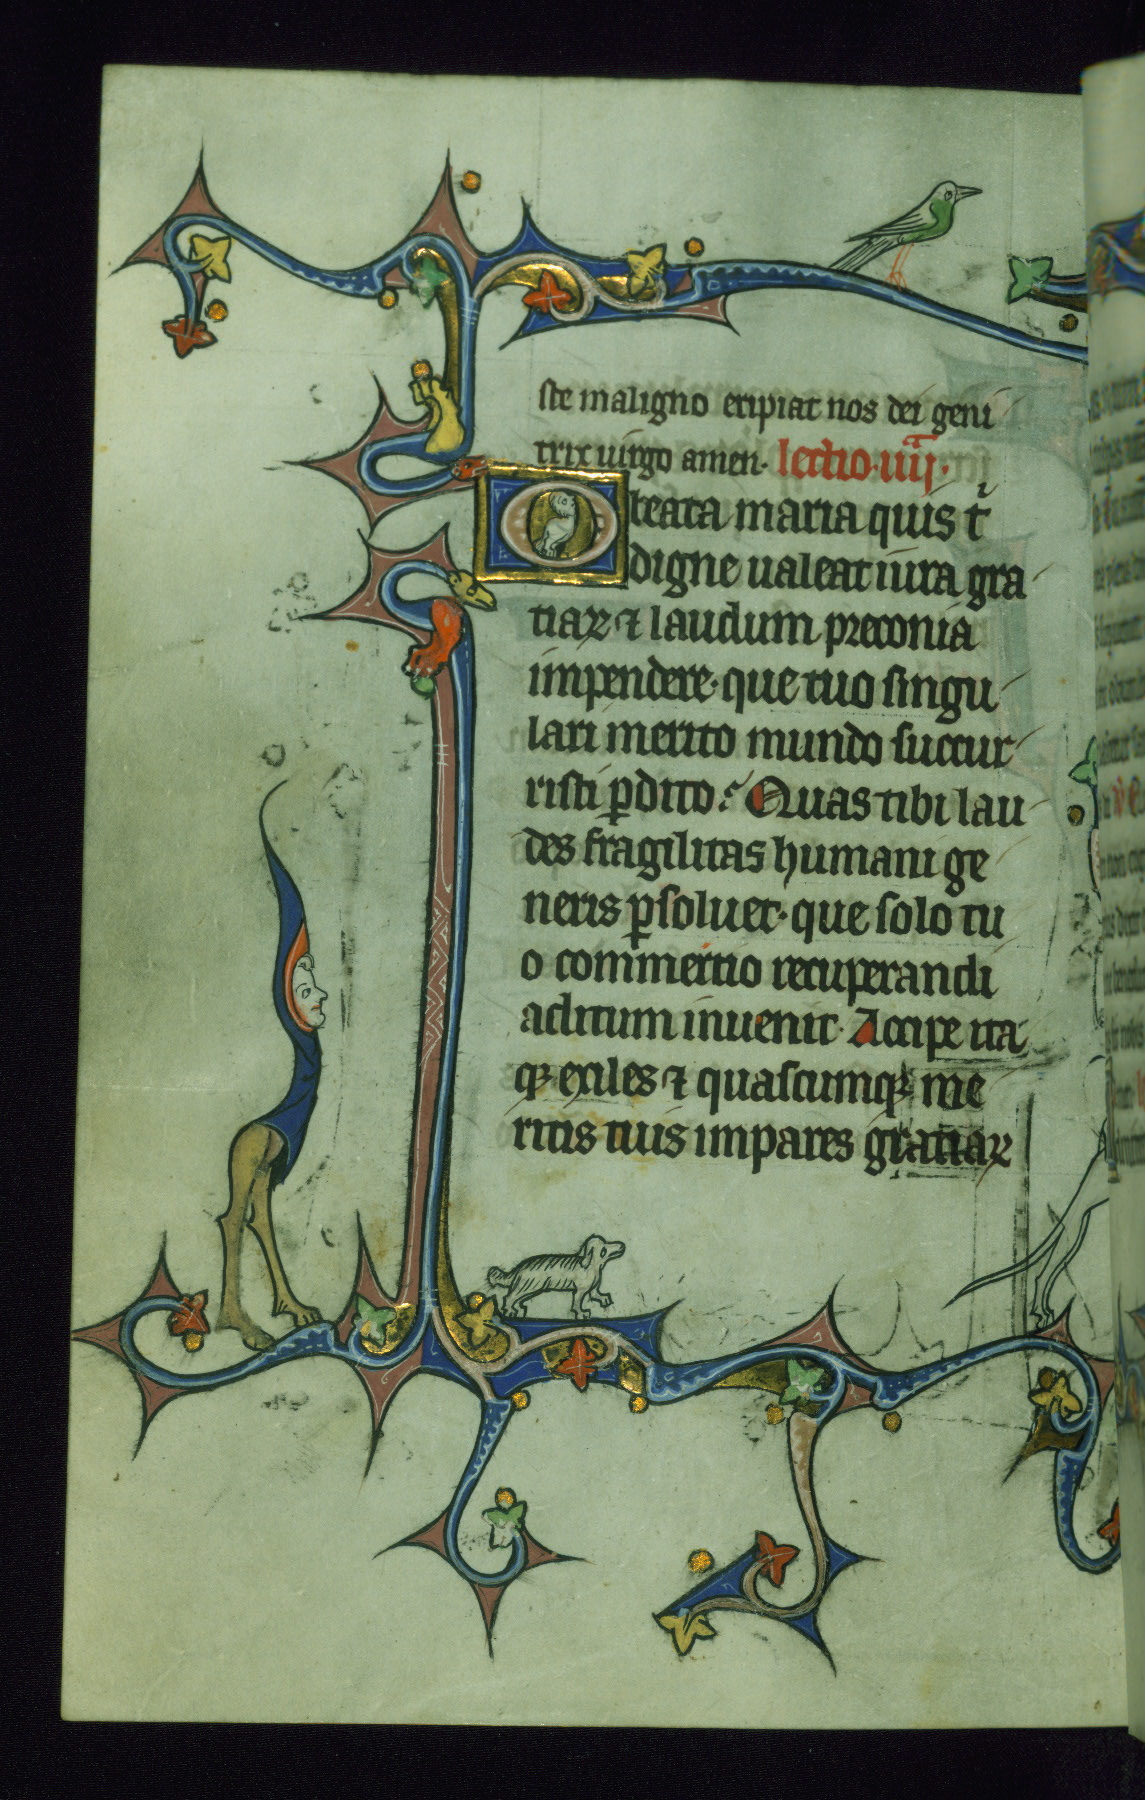 ste maligno eripiat nos dei geni
trix uirgo amen. lectio. iiijᵃ.
O beata maria quis t̉
digne ualeat iura gra
tiaꝝ ⁊ laudum preconia
impendere. que tuo singu
lari merito mundo succur
risti ꝑdito? Quas tibi lau
des fragilitas humani ge
neris ꝑsoluet. que solo tu
o commertio recuperandi
aditum inuenit. Accipe ita
qꝫ exiles ⁊ quascumqꝫ me
ritis tuis impares gratiaꝝ